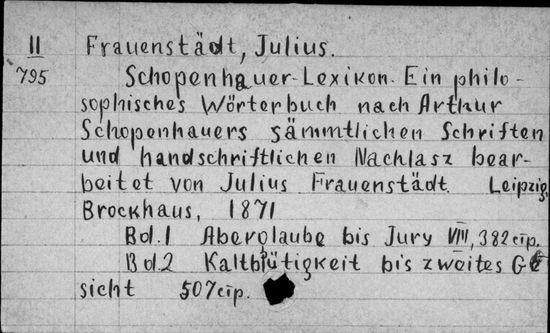 II Frauenstädt, Julius.
795 Schopenhauer-Lexikon. Ein philo-
sophisches Wörterbuch nach Arthur
Schopenhauers sämmtlichen Schriften
und handschriftlichen Nachlasz bear-
beitet von Julius Frauenstädt. Leipzig,
Brockhaus, 1871
Bd.1 Aberglaube bis Jury VIII, 382 cтр.
Bd.2 Kaltblütigkeit bis zweites Ge
sicht 507 cтр.